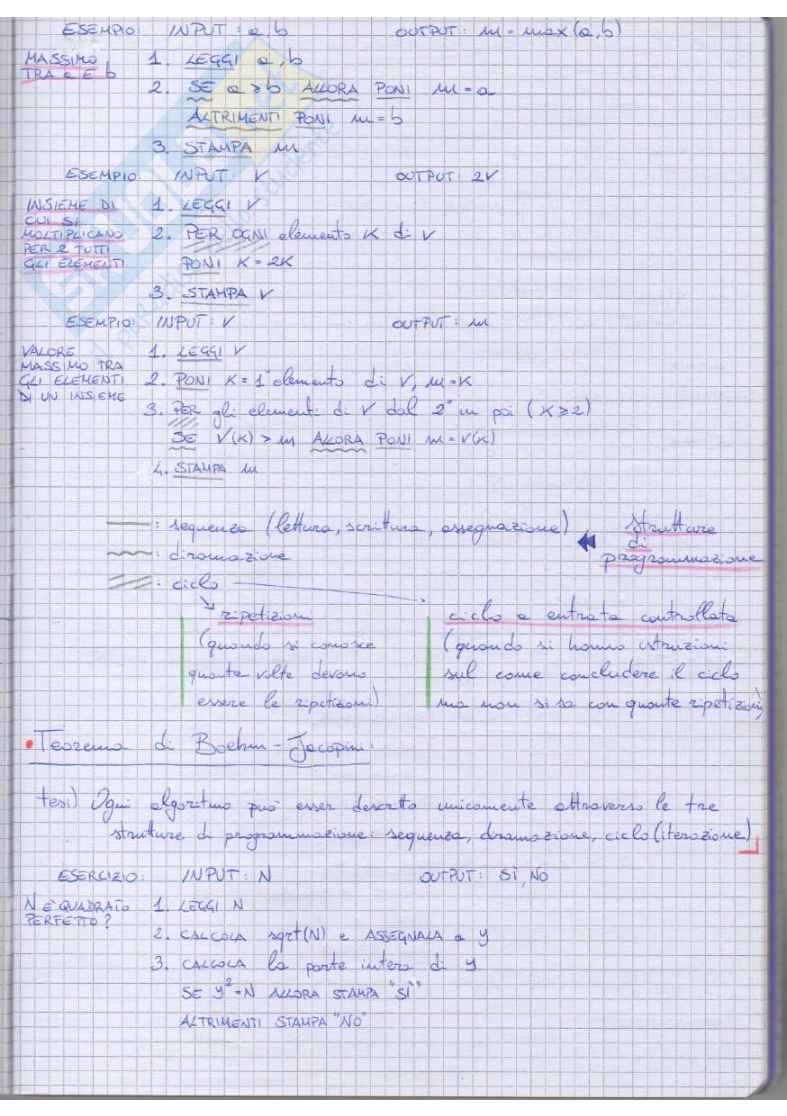 ESEMPIO INPUT: a,b OUTPUT: m = max(a,b)
MASSIMO TRA a E b
1. LEGGI a,b
2. SE a>b ALLORA PONI m=a
ALTRIMENTI PONI m=b
3. STAMPA m
ESEMPIO: INPUT V OUTPUT: 2V
INSIEME DI
CUI SI
MOLTIPLICANO
PER 2 TUTTI
GLI ELEMENTI
1. LEGGI V
2. PER OGNI elemento K di V
PONI K = 2K
3. STAMPA V
ESEMPIO: INPUT: V OUTPUT: m
VALORE
MASSIMO TRA
GLI ELEMENTI
DI UN INSIEME
1. LEGGI V
2. PONI K = 1° elemento di V, m=K
3. PER gli elementi di V dal 2° in poi (K≥2)
SE V(K) > m ALLORA PONI m=V(K)
4. STAMPA m
: sequenza (lettura, scrittura, assegnazione)
: diramazione
: ciclo
strutture
di
programmazione
ripetizioni
(quando si conosce
quante volte devono
essere le ripetizioni)
ciclo a entrata controllata
(quando si hanno istruzioni
sul come concludere il ciclo
ma non si sa con quante ripetizioni)
• Teorema di Boehm-Jacopini:
tesi) Ogni algoritmo può esser descritto unicamente attraverso le tre
strutture di programmazione: sequenza, diramazione, ciclo (iterazione)
ESERCIZIO: INPUT: N OUTPUT: SÌ, NO
N È QUADRATO
PERFETTO?
1. LEGGI N
2. CALCOLA sqrt(N) e ASSEGNALA a y
3. CALCOLA la parte intera di y
SE y²=N ALLORA STAMPA "SÌ"
ALTRIMENTI STAMPA "NO"